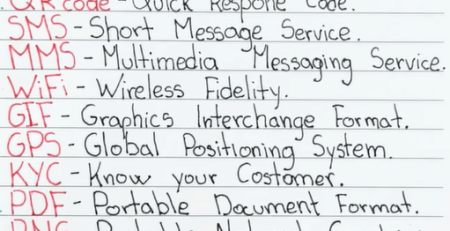 QR code - Quick Response Code.
SMS - Short Message Service.
MMS - Multimedia Messaging Service.
WiFi - Wireless Fidelity.
GIF - Graphics Interchange Format.
GPS - Global Positioning System.
KYC - Know your Costomer.
PDF - Portable Document Format.
PNG - Portable Network